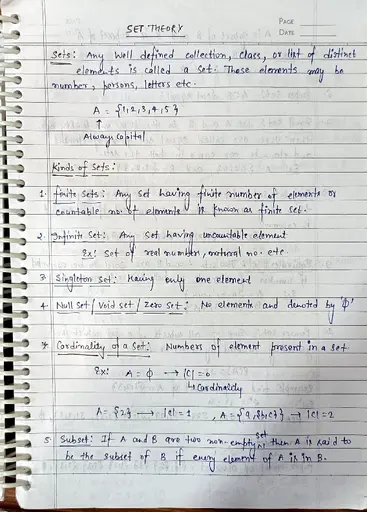 SET THEORY
PAGE
DATE
Sets: Any well defined collection, class, or list of distinct
elements is called a set. These elements may be
number, persons, letters etc.
A = {1,2,3,4,5}
↑
Always capital
Kinds of Sets:
1. finite sets: Any set having finite number of elements or
countable no. of elements is known as finite set.
2. Infinite set: Any set having uncountable element
Ex: Set of real number, natural no. etc.
3. Singleton set: Having only one element
4. Null set / Void set / Zero set: No elements and denoted by 'ϕ'
* Cardinality of a set: Numbers of element present in a set
Ex: A = ϕ → |C| = 0
↳ Cardinality
A = {2} → |C| = 1 , A = {9,{b,c}} → |C| = 2
5. Subset: If A and B are two non-empty set then A is said to
be the subset of B if every element of A is in B.